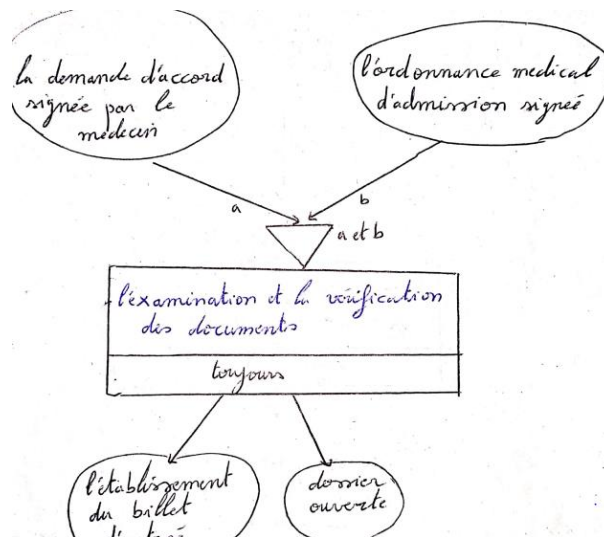 la demande d'accord
signée par le
médecin
l'ordonnance medical
d'admission signeé
a
b
a et b
l'éxamination et la vérification
des documents
toujours
l'établissement
du billet
dossier
ouverte